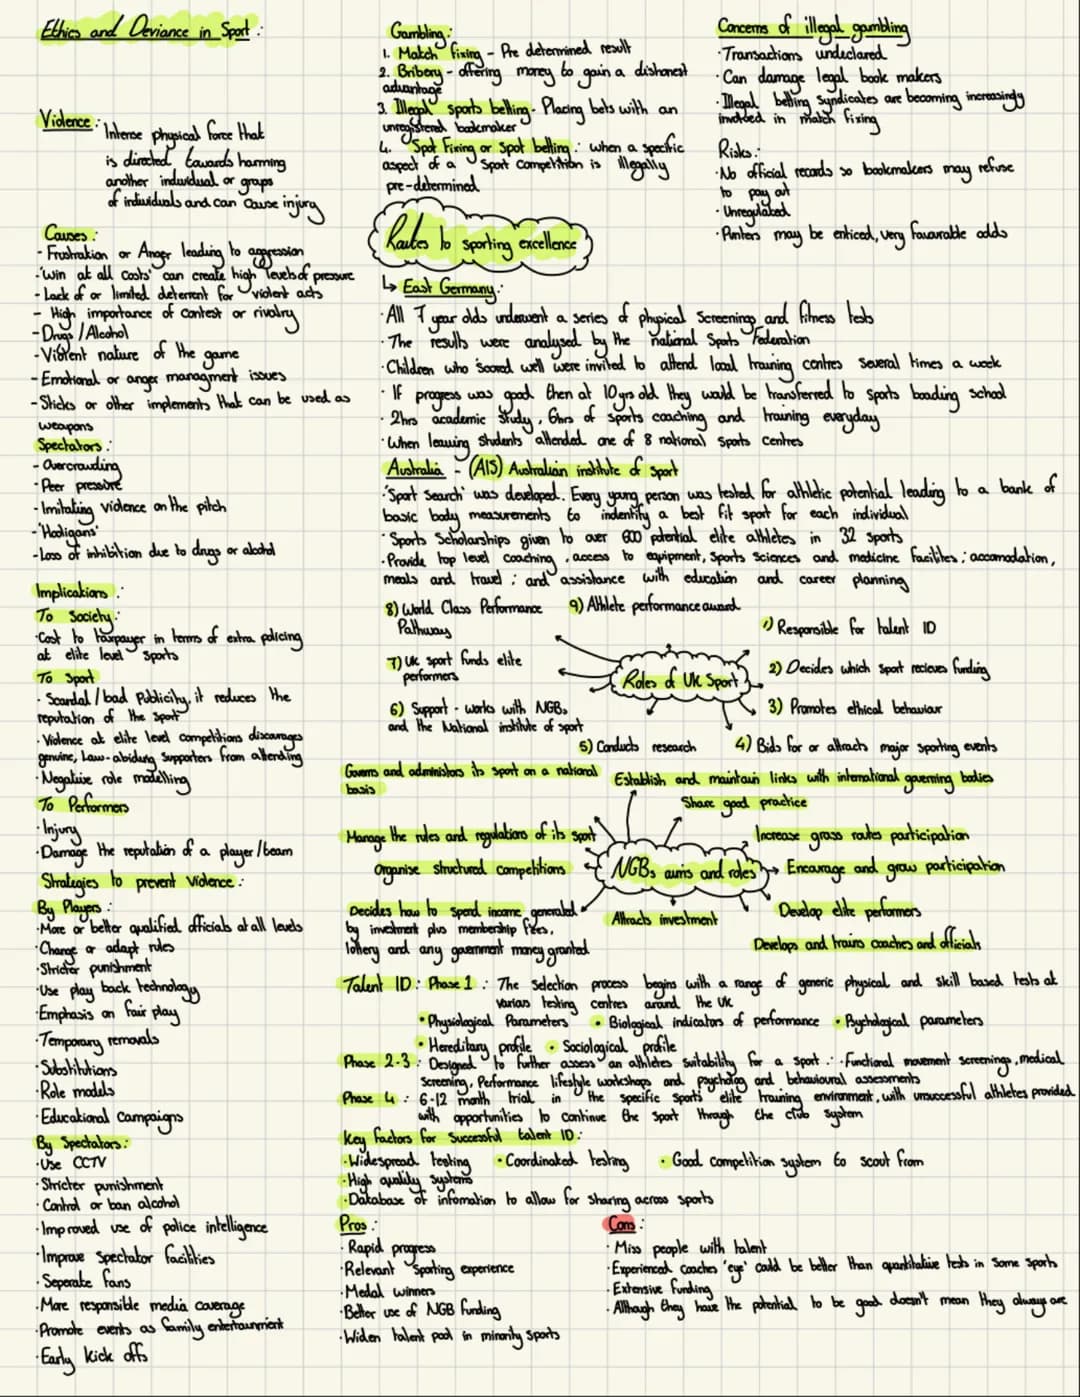 Ethics and Deviance in Sport :
Violence : Intense physical force that
is directed towards harming
another individual or groups
of individuals and can cause injury
Causes :
- Frustration or Anger leading to aggression
- 'Win at all costs' can create high levels of pressure
- Lack of or limited deterrent for violent acts
- High importance of contest or rivalry
- Drugs / Alcohol
- Violent nature of the game
- Emotional or anger managment issues
- Sticks or other implements that can be used as
weapons
Spectators :
- Overcrowding
- Peer pressure
- Imitating violence on the pitch
- 'Hooligans'
- Loss of inhibition due to drugs or alcohol
Implications :
To Society :
· Cost to taxpayer in terms of extra policing
at elite level sports
To Sport
· Scandal / bad Publicity, it reduces the
reputation of the sport
· Violence at elite level competitions discourages
genuine, Law-abiding supporters from attending
· Negative role modelling
To Performers
· Injury
· Damage the reputation of a player / team
Strategies to prevent Violence :
By Players :
· More or better qualified officials at all levels
· Change or adapt rules
· Stricter punishment
· Use play back technology
· Emphasis on fair play
· Temporary removals
· Substitutions
· Role models
· Educational Campaigns
By Spectators :
· Use CCTV
· Stricter punishment
· Control or ban alcohol
· Improved use of police intelligence
· Improve Spectator facilities
· Seperate fans
· More responsible media coverage
· Promote events as family entertainment
· Early kick offs
Gambling :
1. Match fixing - Pre determined result
2. Bribery - offering money to gain a dishonest
advantage
3. Illegal sports betting - Placing bets with an
unregistered bookmaker
4. Spot Fixing or Spot betting : when a specific
aspect of a sport competition is illegally
pre-determined
Concerns of illegal gambling
· Transactions undeclared
· Can damage legal book makers
· Illegal betting syndicates are becoming increasingly
involved in match fixing
Risks :
· No official records so bookmakers may refuse
to pay out
· Unregulated
· Punters may be enticed, very favourable odds
Routes to sporting excellence
↳ East Germany :
· All 7 year olds underwent a series of physical Screenings and fitness tests
· The results were analysed by the national Sports Federation
· Children who scored well were invited to attend local training centres several times a week
· If progress was good then at 10yrs old they would be transferred to sports boading school
· 2hrs academic study, 6hrs of sports coaching and training everyday
· When leaving students attended one of 8 national sports centres
Australia - (AIS) Australian institute of sport
· 'Sport Search' was developed. Every young person was tested for athletic potential leading to a bank of
basic body measurements to indentify a best fit sport for each individual
· Sports Scholarships given to over 600 potential elite athletes in 32 sports
· Provide top level coaching, access to equipment, sports sciences and medicine facilites ; accomodation,
meals and travel ; and assistance with education and career planning
Roles of UK Sport
1) Responsible for talent ID
2) Decides which sport recieves funding
3) Promotes ethical behaviour
4) Bids for or attracts major sporting events
5) Conducts research
6) Support - works with NGBs
and the National institute of sport
7) UK sport funds elite
performers
8) World Class Performance
Pathway
9) Athlete performance award
NGBs aims and roles
Governs and administers its sport on a national
basis
Establish and maintain links with international governing bodies
Share good practice
Manage the rules and regulations of its sport
Increase grass routes participation
Organise structured competitions
Encourage and grow participation
Decides how to spend income generated
by investment plus membership fees,
lottery and any government money granted
Attracts investment
Develop elite performers
Develops and trains coaches and officials
Talent ID : Phase 1 : The selection process begins with a range of generic physical and skill based tests at
various testing centres around the UK
• Physiological Parameters • Biological indicators of performance • Psychological parameters
• Hereditary profile • Sociological profile
Phase 2-3 : Designed to further assess an athletes suitability for a sport : · Functional movement screenings, medical
Screening, Performance lifestyle workshops and psycholog and behavioural assessments
Phase 4 : 6-12 month trial in the specific sports elite training environment, with unsuccessful athletes provided
with opportunities to continue the sport through the club system
Key factors for successful talent ID :
· Widespread testing • Coordinated testing • Good competition system to scout from
· High quality systems
· Database of infomation to allow for sharing across sports
Pros :
· Rapid progress
· Relevant sporting experience
· Medal winners
· Better use of NGB funding
· Widen talent pool in minority sports
Cons :
· Miss people with talent
· Experienced coaches 'eye' could be better than quantitative tests in some sports
· Extensive funding
· Although they have the potential to be good doesn't mean they always are